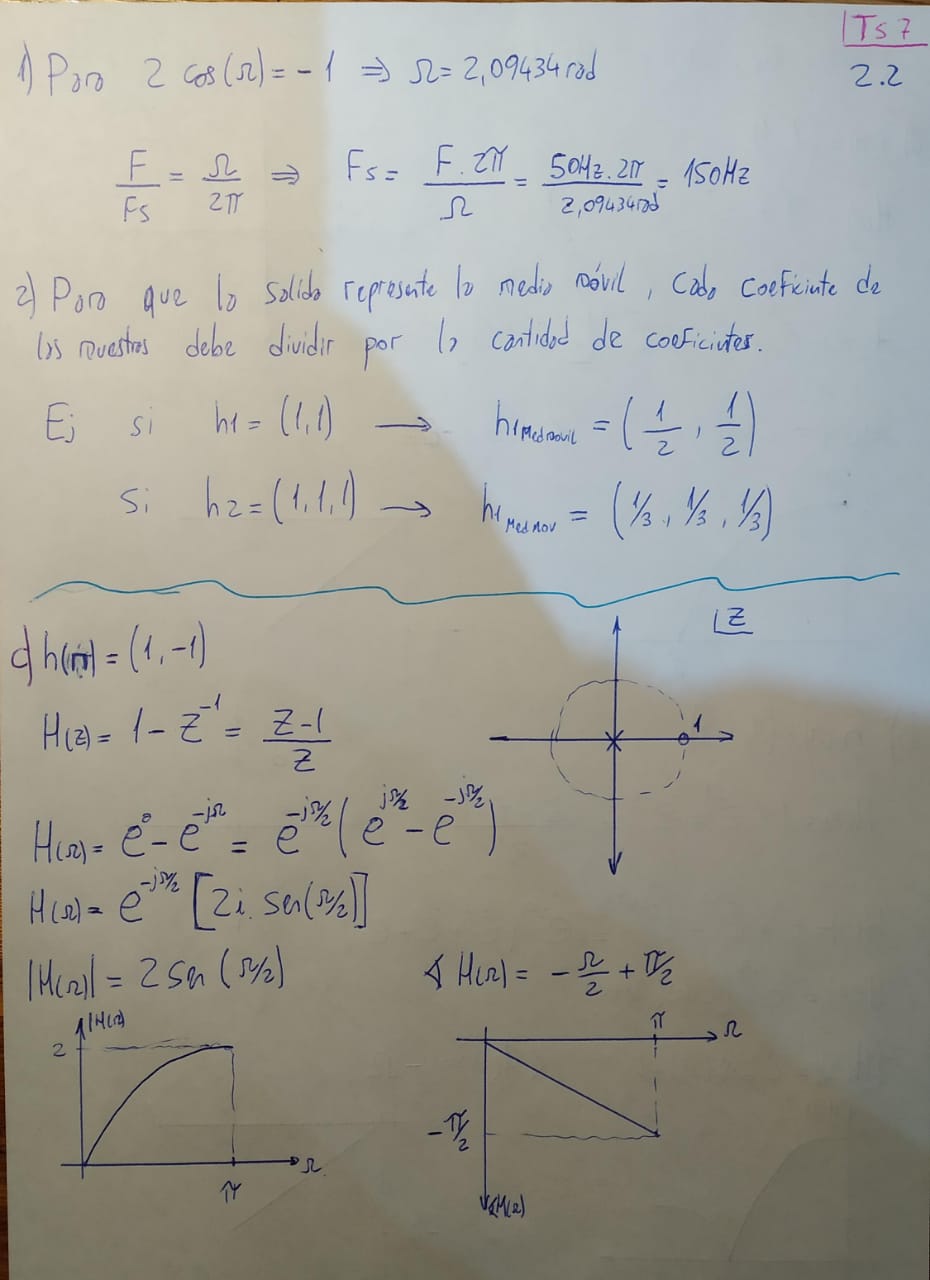 Ts 7
2.2
1) Para 2 cos(Ω) = -1 ⇒ Ω = 2,09434 rad
F/Fs = Ω/2π ⇒ Fs = F . 2π/Ω = 50Hz . 2π/2,09434rad = 150Hz
2) Para que la salida represente la media móvil, cada coeficiente de
las muestras debe dividir por la cantidad de coeficintes.
Ej si h1 = (1,1) → h1 Med movil = (1/2, 1/2)
Si h2 = (1,1,1) → h1 Med mov = (1/3, 1/3, 1/3)
Z
c) h(n) = (1,-1)
1
H(z) = 1 - z^-1 = z-1/z
H(Ω) = e^0 - e^-jΩ = e^-jΩ/2 (e^jΩ/2 - e^-jΩ/2)
H(Ω) = e^-jΩ/2 [2i. sen(Ω/2)]
|H(Ω)| = 2 sen (Ω/2) ∢ H(Ω) = -Ω/2 + π/2
|H(Ω)|
2
π
Ω
π
Ω
-π/2
∢H(Ω)